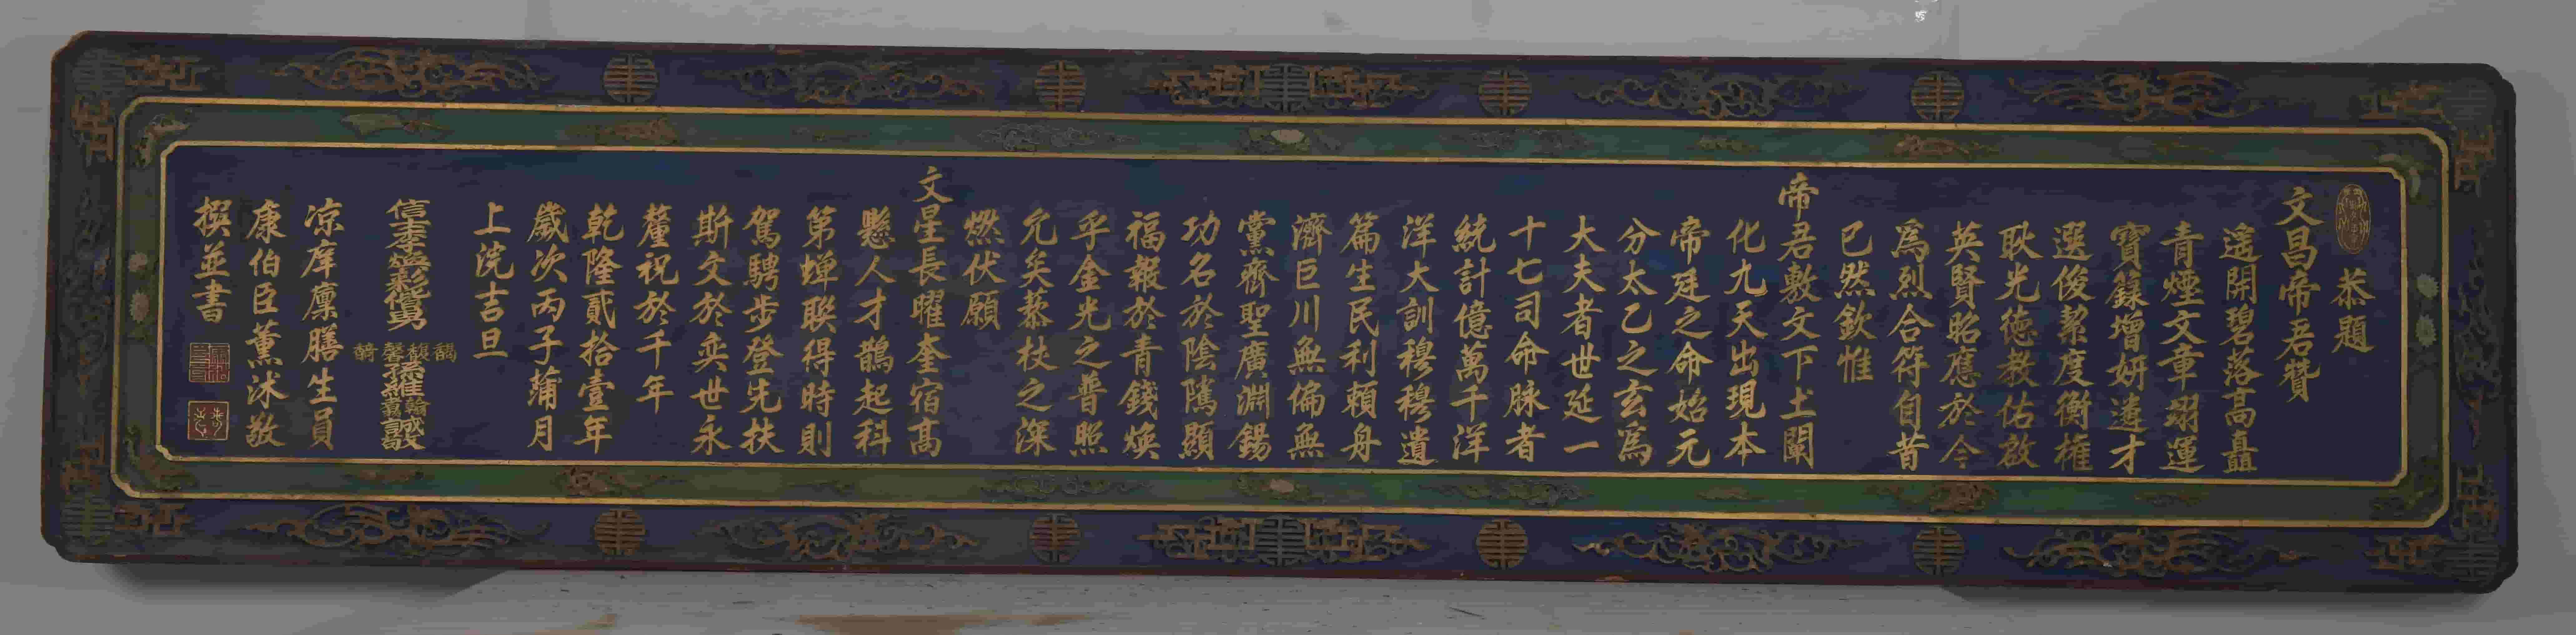 恭題
文昌帝君贊
遙開碧落高矗
青煙文章翊運
寶籙增妍遴才
選俊絜度衡權
耿光德教佑啟
英賢昭應於今
爲烈合符自昔
已然欽惟
帝君敷文下土闡
化九天出現本
帝廷之命始元
分太乙之玄爲
大夫者世延一
十七司命脉者
統計億萬千洋
洋大訓穆穆遺
篇生民利賴舟
濟巨川無偏無
黨齊聖廣淵錫
功名於陰隲顯
福報於青錢煥
乎金光之普照
允矣藜杖之深
燃伏願
文星長曜奎宿高
懸人才鵲起科
第蟬聯得時則
駕騁步登先扶
斯文於奕世永
釐祝於千年
乾隆貳拾壹年
歲次丙子蒲月
上浣吉旦
信士李
孫維
涼庠廩膳生員
康伯臣薰沐敬
撰並書